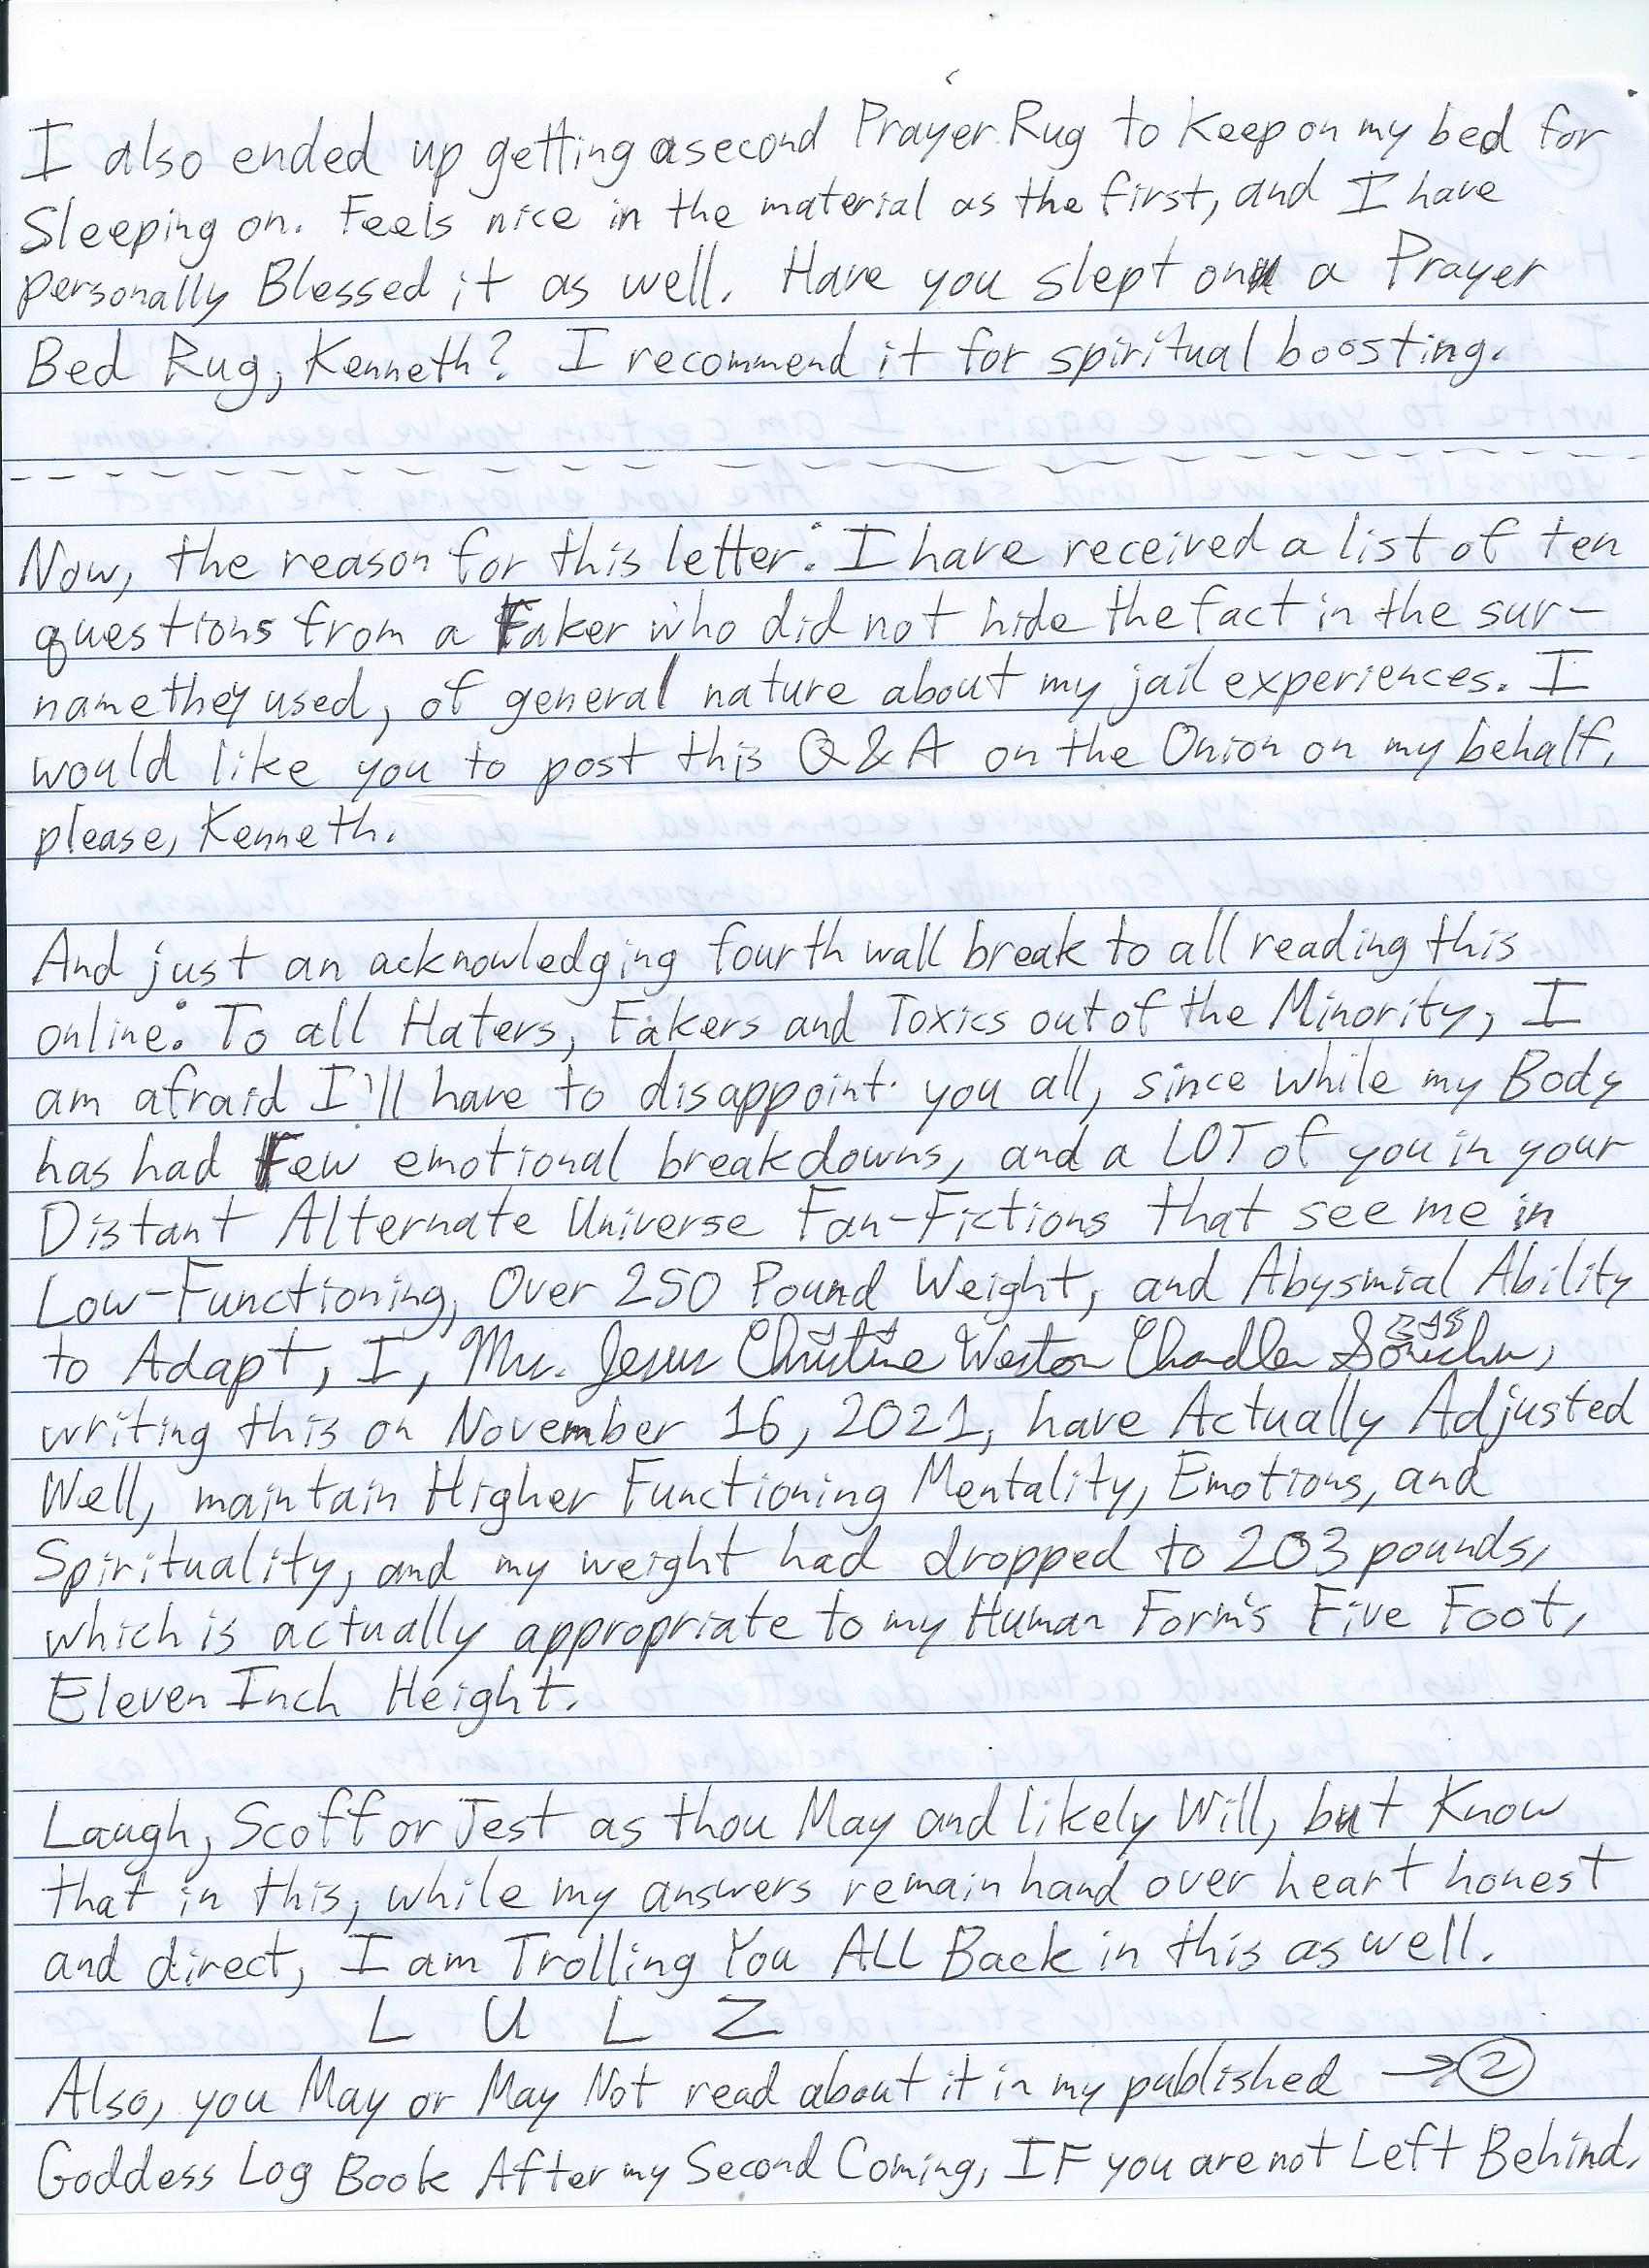 I also ended up getting a second Prayer Rug to keep on my bed for
Sleeping on. Feels nice in the material as the first, and I have
personally Blessed it as well. Have you slept on a Prayer
Bed Rug, Kenneth? I recommend it for spiritual boosting.
Now, the reason for this letter: I have received a list of ten
questions from a Faker who did not hide the fact in the sur-
name they used, of general nature about my jail experiences. I
would like you to post this Q & A on the Onion on my behalf,
please, Kenneth.
And just an acknowledging fourth wall break to all reading this
online: To all Haters, Fakers and Toxics out of the Minority, I
am afraid I'll have to disappoint you all, since while my Body
has had Few emotional breakdowns, and a LOT of you in your
Distant Alternate Universe Fan-Fictions that see me in
Low-Functioning, Over 250 Pound Weight, and Abysmial Ability
to Adapt, I, Mrs. Jesus Christine Weston Chandler Sonichu,
writing this on November 16, 2021, have Actually Adjusted
Well, maintain Higher Functioning Mentality, Emotions, and
Spirituality, and my weight had dropped to 203 pounds,
which is actually appropriate to my Human Form's Five Foot,
Eleven Inch Height.
Laugh, Scoff or Jest as thou May and likely Will, but Know
that in this, while my answers remain hand over heart honest
and direct, I am Trolling You ALL Back in this as well.
L U L Z
Also, you May or May Not read about it in my published → 2
Goddess Log Book After my Second Coming, IF you are not Left Behind.